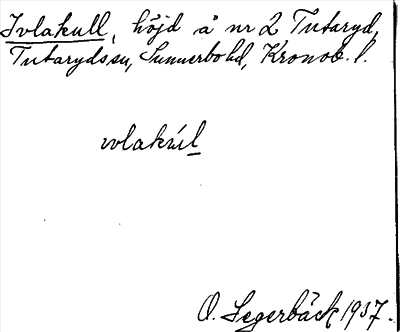 Ivlakull, höjd å nr 2 Tutaryd,
Tutaryds sn, Sunnerbo hd, Kronob. l.
ivlakúl
O. Segerbäck 1937.